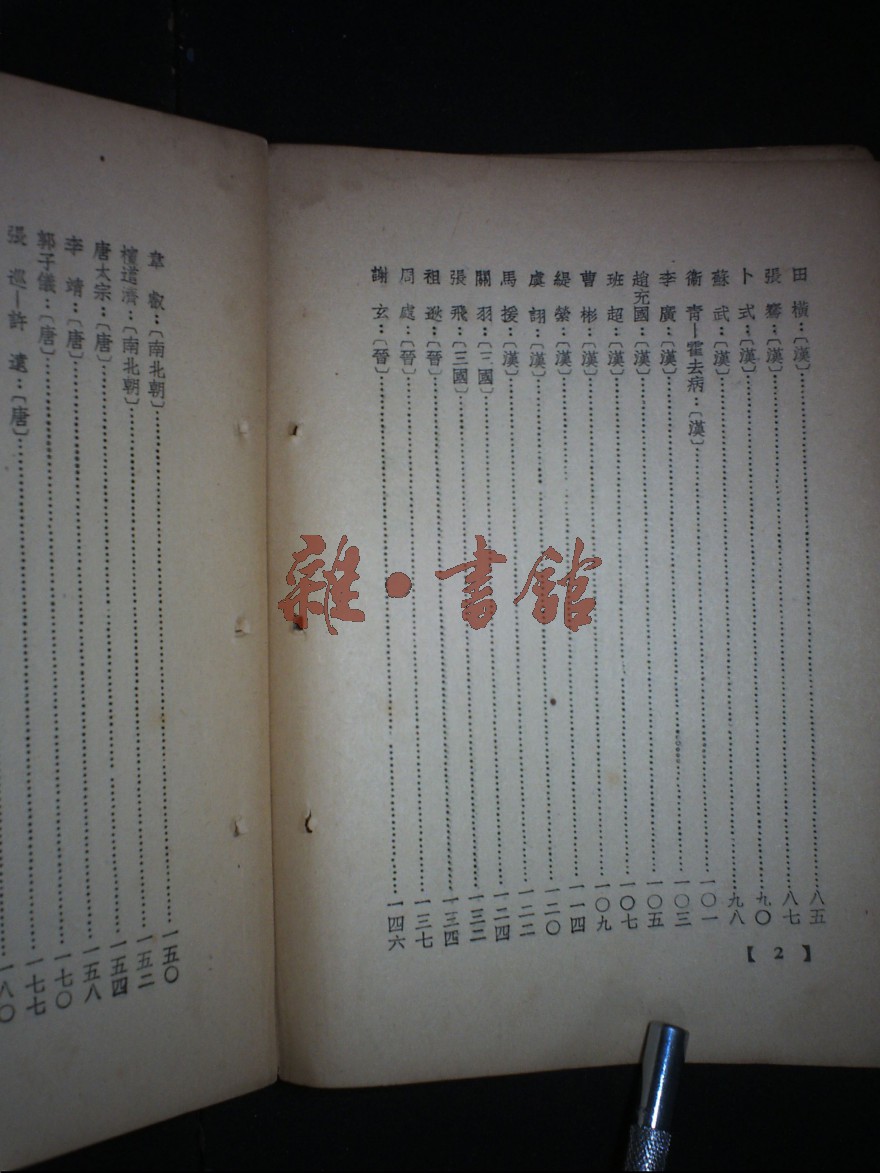 【2】
田 橫：〔漢〕……八五
張 騫：〔漢〕……八七
卜 式：〔漢〕……九〇
蘇 武：〔漢〕……九八
衞 青—霍去病：〔漢〕……一〇一
李 廣：〔漢〕……一〇三
趙充國：〔漢〕……一〇五
班 超：〔漢〕……一〇七
曹 彬：〔漢〕……一〇九
緹 縈：〔漢〕……一一四
虞 詡：〔漢〕……一二〇
馬 援：〔漢〕……一二二
關 羽：〔三國〕……一二四
張 飛：〔三國〕……一三二
祖 逖：〔晉〕……一三四
周 處：〔晉〕……一三七
謝 玄：〔晉〕……一四六
韋 叡：〔南北朝〕……一五〇
檀道濟：〔南北朝〕……一五二
唐太宗：〔唐〕……一五四
李 靖：〔唐〕……一五八
郭子儀：〔唐〕……一七〇
張 巡—許 遠：〔唐〕……一七七
一八〇
雜·書館